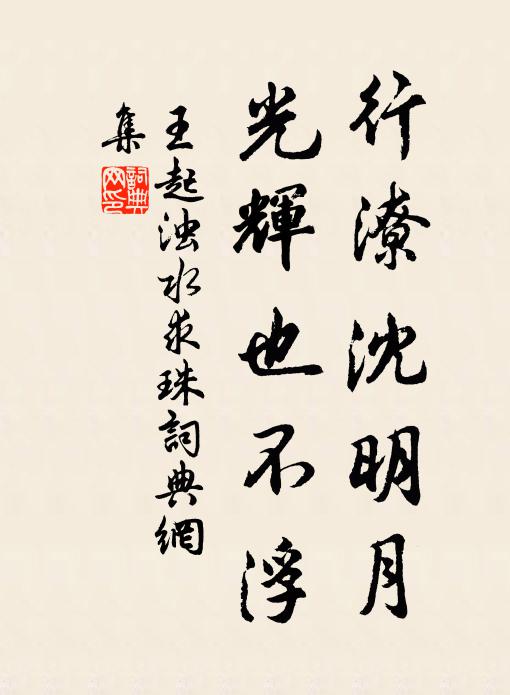 行潦沈明月
光輝也不浮
王起浊水求珠詞典網
集
詞典网印